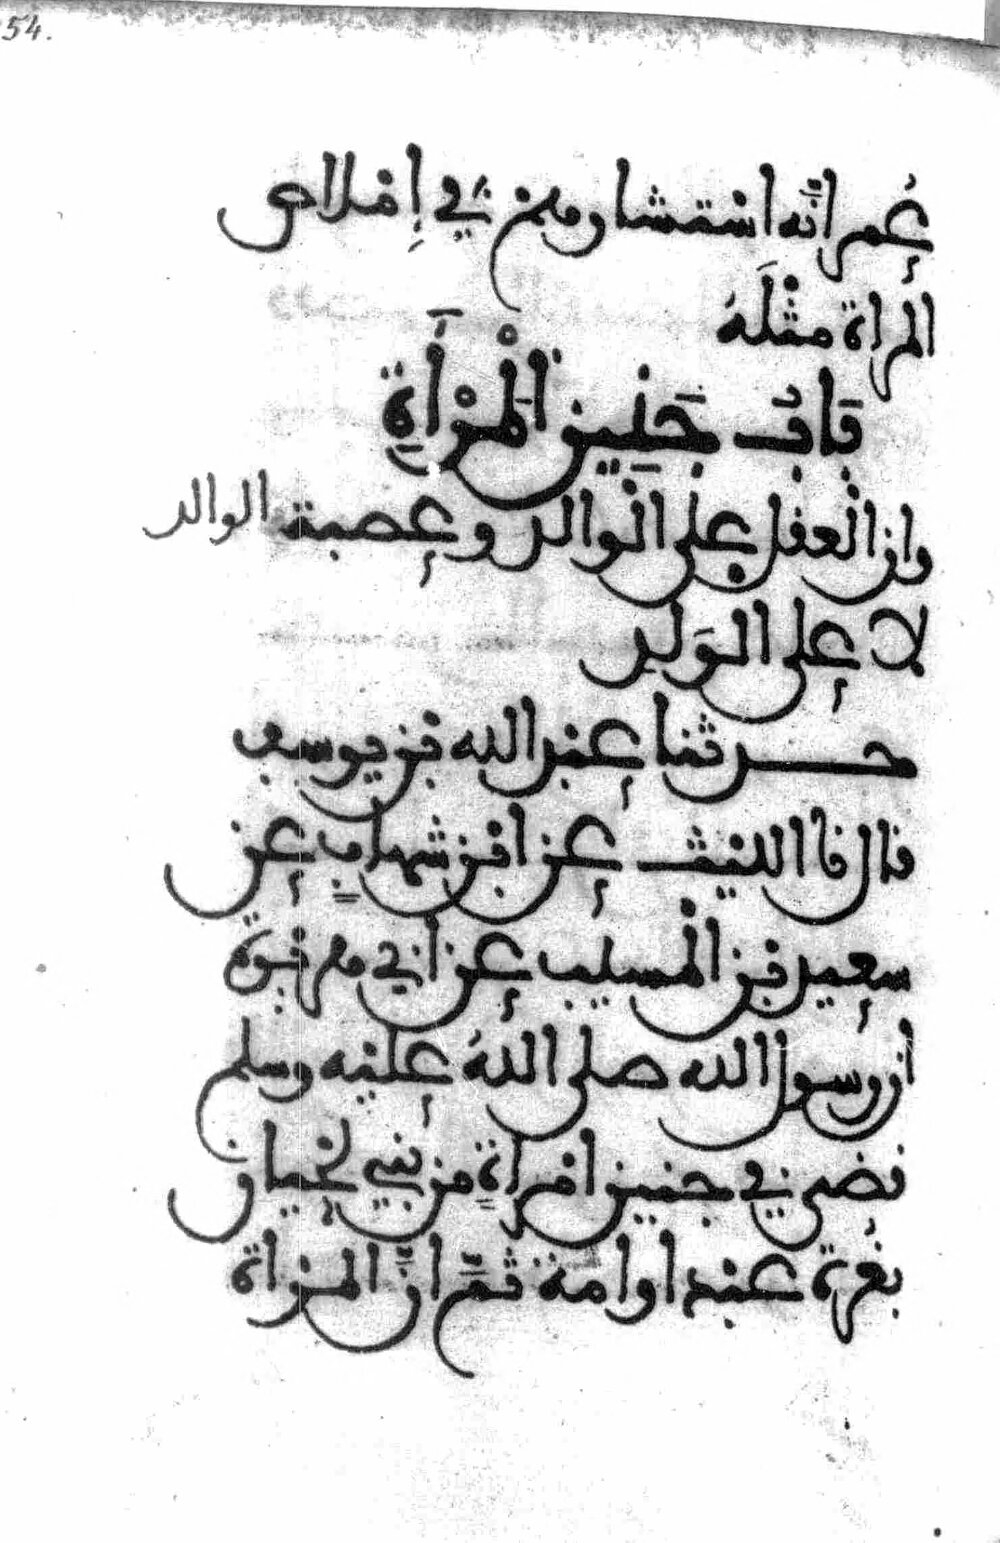 54.
عُمر انّه اسْتشارهم في إِملاص
المرأة مثْلَهُ
بَابُ جَنِينِ الْمَرْأَةِ
وان الْعقل على الْوالد وعصبة الوالد
لا على الوَلد
حدثنا عبد الله بن يوسف
قال نا الليث عن ابن شهابٍ عن
سعيد بن الْمسيب عن أبي هريرة
أن رسول الله صلى اللهُ عليه وسلم
قضى في جنين امرأةٍ من بني لِحْيان
بغُرة عبد او امة ثمّ انَّ المرأة